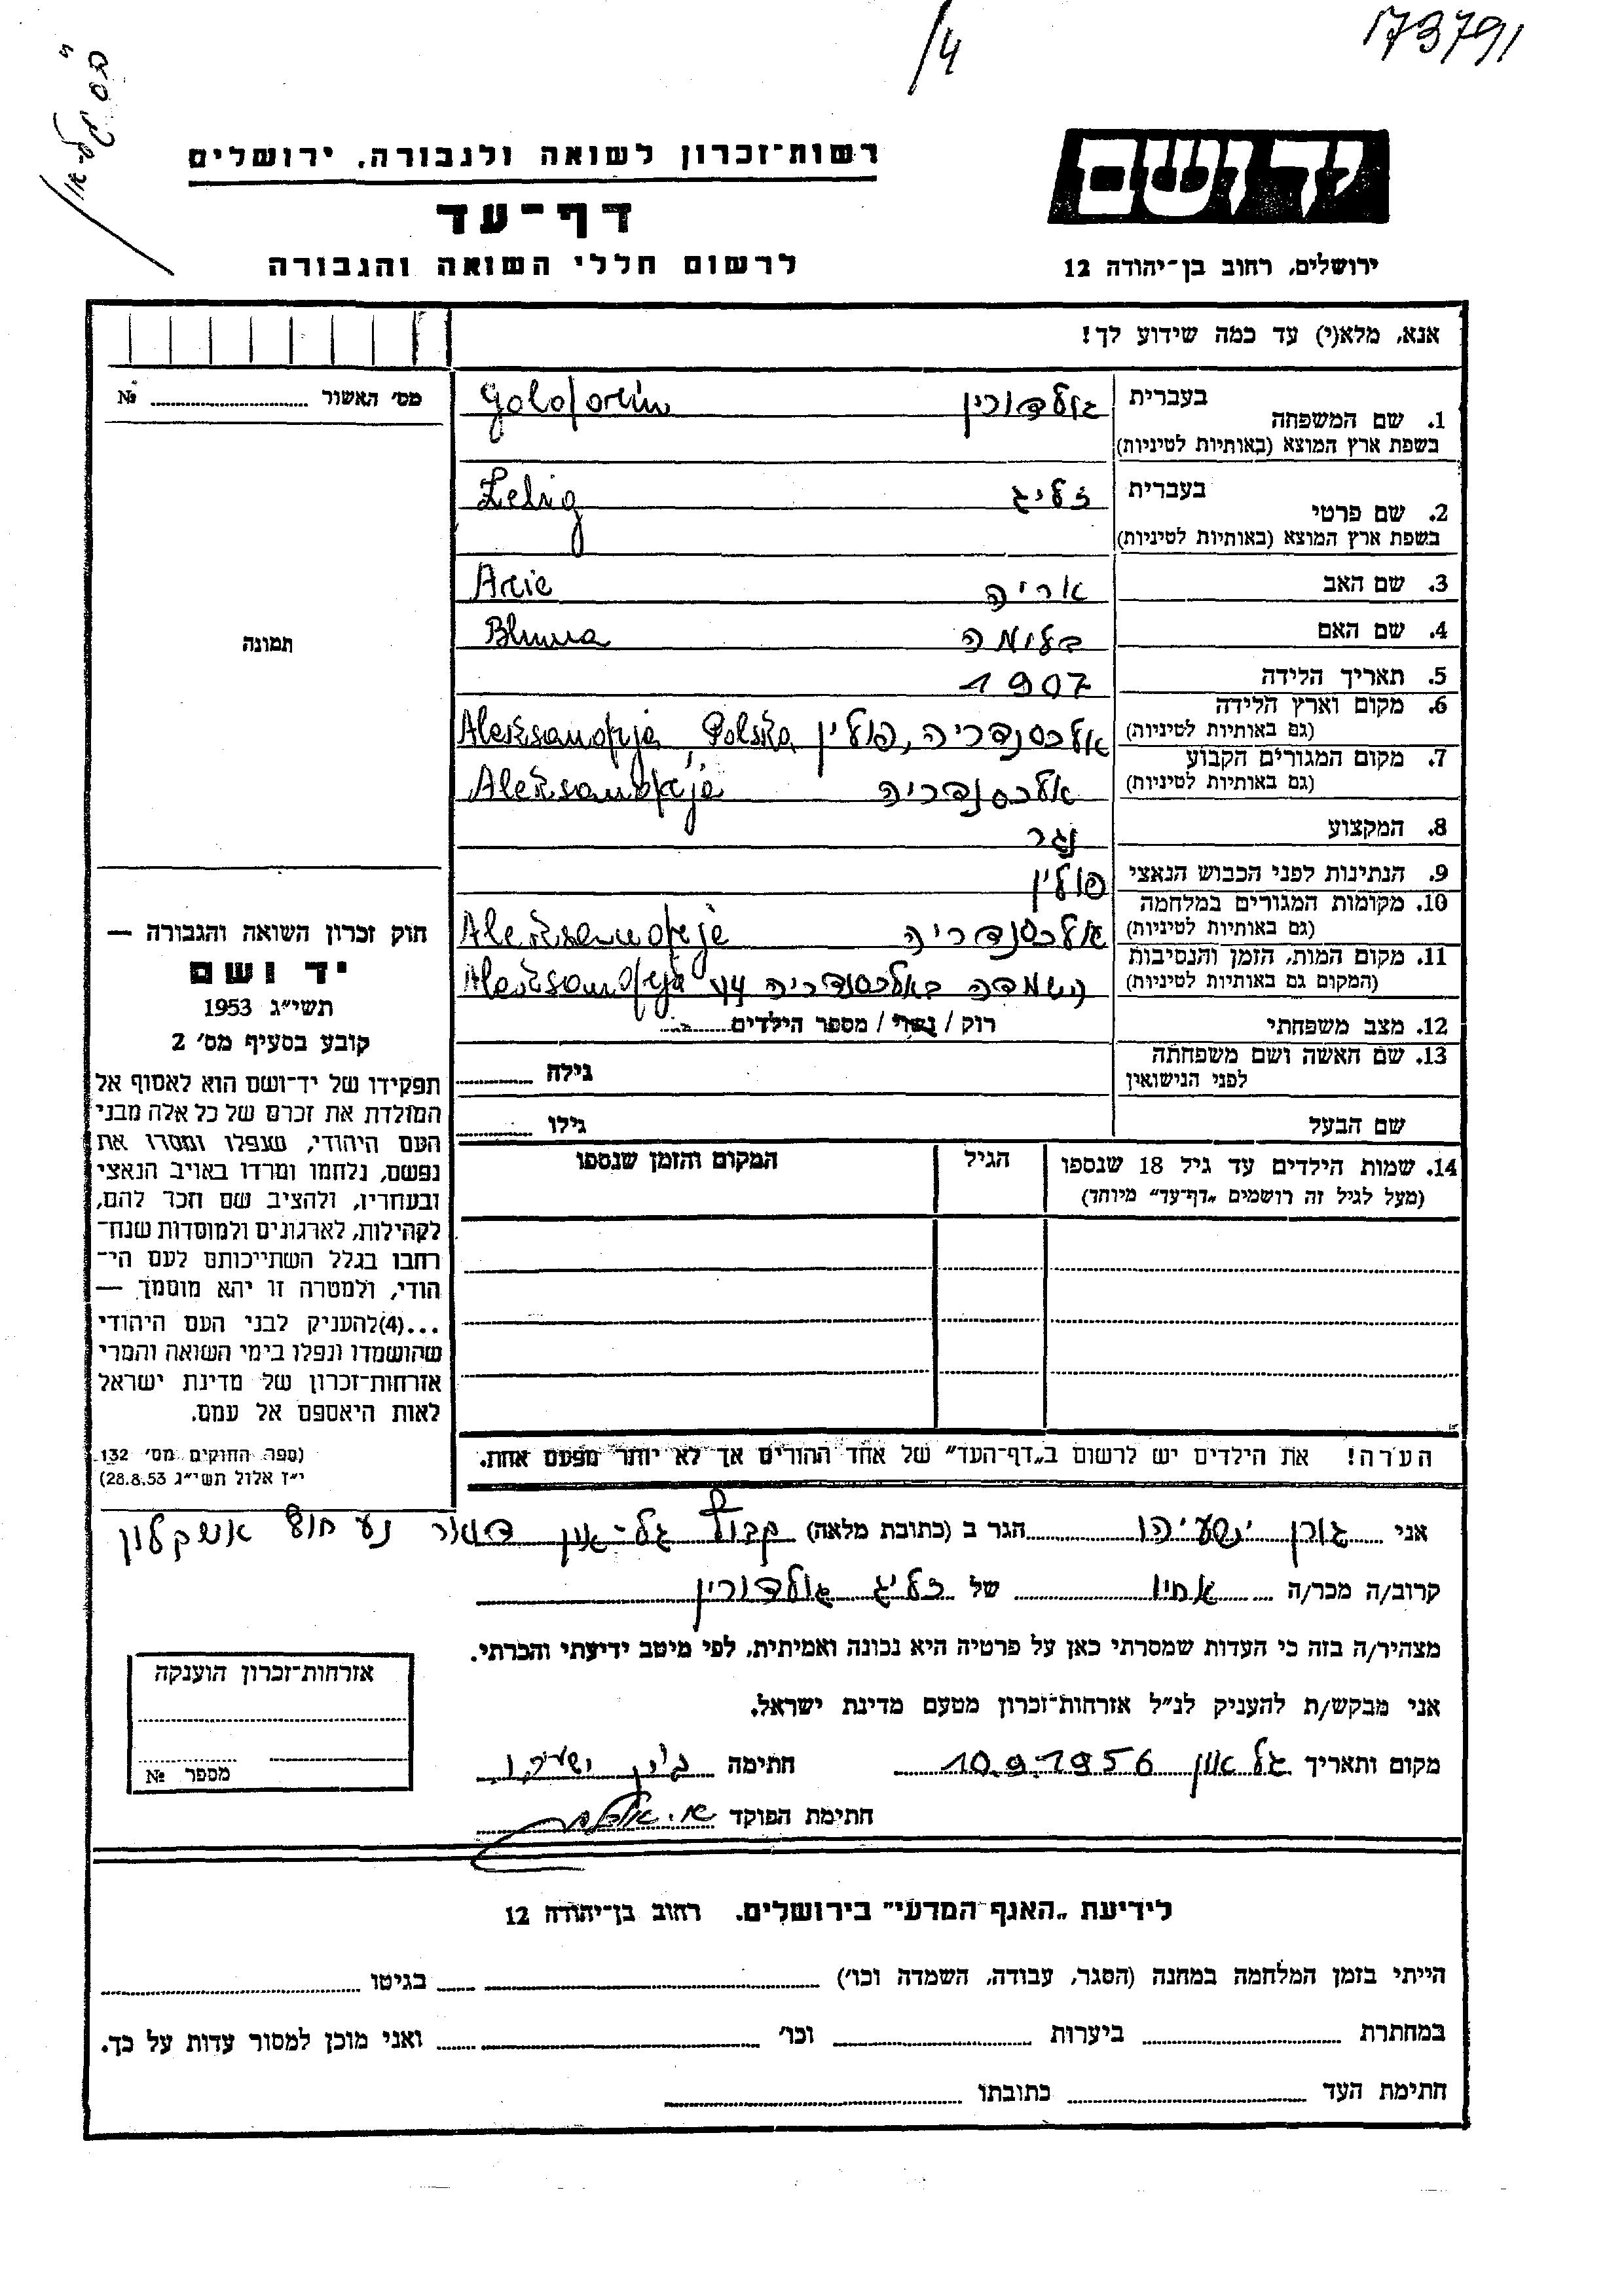 173791
/4
רשות־זכרון לשואה ולגבורה, ירושלים
יד ושם
דף־עד
לרשום חללי השואה והגבורה
ירושלים, רחוב בן־יהודה 12
אנא, מלא(י) עד כמה שידוע לך!
מס׳ האשור № ..........
1. שם המשפחה בעברית גולדורין Goldorin
בשפת ארץ המוצא (באותיות לטיניות)
2. שם פרטי בעברית זליג Zelig
בשפת ארץ המוצא (באותיות לטיניות)
3. שם האב אריה Arie
4. שם האם בלומה Bluma
תמונה
5. תאריך הלידה 1907
6. מקום וארץ הלידה (גם באותיות לטיניות) אלכסנדריה, פולין Aleksandrja, Polska
7. מקום המגורים הקבוע (גם באותיות לטיניות) אלכסנדריה Aleksandrja
8. המקצוע נגר
9. הנתינות לפני הכבוש הנאצי פולין
10. מקומות המגורים במלחמה (גם באותיות לטיניות) אלכסנדריה Aleksandrja
11. מקום המות, הזמן והנסיבות (המקום גם באותיות לטיניות) השמדה באלכסנדריה Aleksandrja
12. מצב משפחתי רוק / נשוי / מספר הילדים ..........
13. שם האשה ושם משפחתה לפני הנישואין גילה ..........
שם הבעל גילו ..........
14. שמות הילדים עד גיל 18 שנספו הגיל המקום והזמן שנספו
(מעל לגיל זה רושמים „דף־עד״ מיוחד)
חוק זכרון השואה והגבורה —
יד ושם
תשי״ג 1953
קובע בסעיף מס׳ 2
תפקידו של יד־ושם הוא לאסוף אל
המולדת את זכרם של כל אלה מבני
העם היהודי, שנפלו ומסרו את
נפשם, נלחמו ומרדו באויב הנאצי
ובעוזריו, ולהציב שם וזכר להם,
לקהילות, לארגונים ולמוסדות שנח־
רחבו בגלל השתייכותם לעם הי־
הודי, ולמטרה זו יהא מוסמך —
...(4)להעניק לבני העם היהודי
שהושמדו ונפלו בימי השואה והמרי
אזרחות־זכרון של מדינת ישראל
לאות היאספם אל עמם.
(ספר החוקים מס׳ 132
י״ז אלול תשי״ג 28.8.53)
הערה! את הילדים יש לרשום ב„דף־העד״ של אחד ההורים אך לא יותר מפעם אחת.
אני גורן ישעיהו הגר ב (כתובת מלאה) קבוץ גל־און דואר נע חוף אשקלון
קרוב/ה מכר/ה אחיו של זליג גולדורין
מצהיר/ה בזה כי העדות שמסרתי כאן על פרטיה היא נכונה ואמיתית, לפי מיטב ידיעתי והכרתי.
אני מבקש/ת להעניק לנ״ל אזרחות־זכרון מטעם מדינת ישראל.
מקום ותאריך גל און 10.9.1956 חתימה גורן ישעיהו
חתימת הפוקד
אזרחות־זכרון הוענקה
מספר №
לידיעת „האגף המדעי״ בירושלים. רחוב בן־יהודה 12
הייתי בזמן המלחמה במחנה (הסגר, עבודה, השמדה וכו׳) .......... בגיטו ..........
במחתרת .......... ביערות .......... וכו׳ .......... ואני מוכן למסור עדות על כך.
חתימת העד .......... כתובתו ..........